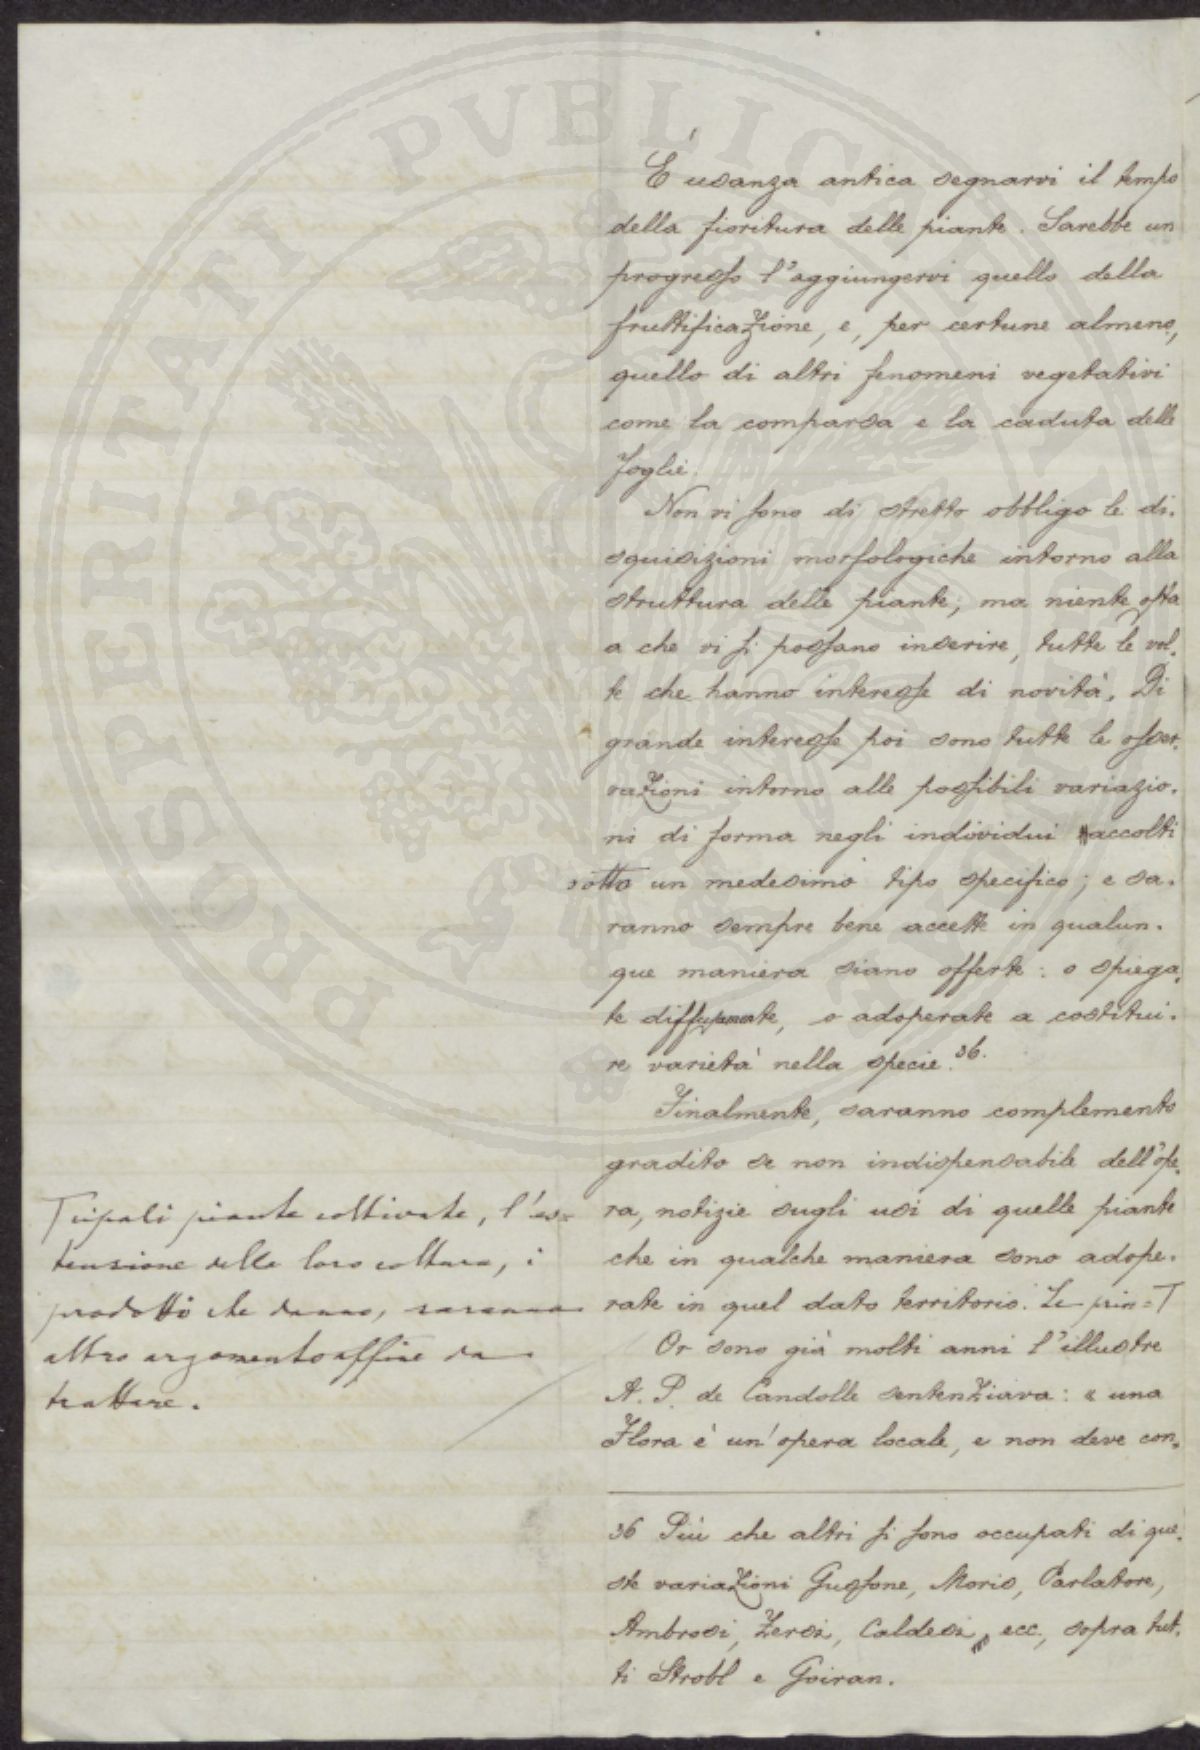 È usanza antica segnarvi il tempo
della fioritura delle piante. Sarebbe un
progresso l'aggiungervi quello della
fruttificazione, e, per certune almeno,
quello di altri fenomeni vegetativi
come la comparsa e la caduta delle
foglie.
Non vi sono di stretto obbligo le di-
squisizioni morfologiche intorno alla
struttura delle piante; ma niente osta
a che vi si possano inserire, tutte le vol-
te che hanno interesse di novità. Di
grande interesse poi sono tutte le osser-
vazioni intorno alle possibili variazio-
ni di forma negli individui raccolti
sotto un medesimo tipo specifico; e sa-
ranno sempre bene accette in qualun-
que maniera siano offerte: o spiega-
te diffusamente, o adoperate a costitui-
re varietà nella specie.36.
Finalmente, saranno complemento
gradito se non indispensabile dell'ope-
ra, notizie sugli usi di quelle piante
che in qualche maniera sono adope-
rate in quel dato territorio. Le prin=T
T cipali piante coltivate, l'es=
tensione della loro coltura, i
prodotti che danno, saranno
altro argomento affine da
trattare.
Or sono già molti anni l'illustre
A. P. de Candolle sentenziava: « una
Flora è un'opera locale, e non deve con-
36 Più che altri si sono occupati di que-
ste variazioni Gussone, Moris, Parlatore,
Ambrosi, Zersi, Caldesi, ecc., sopra tut-
ti Strobl e Goiran.
PROSPERITATI PVBLICAE